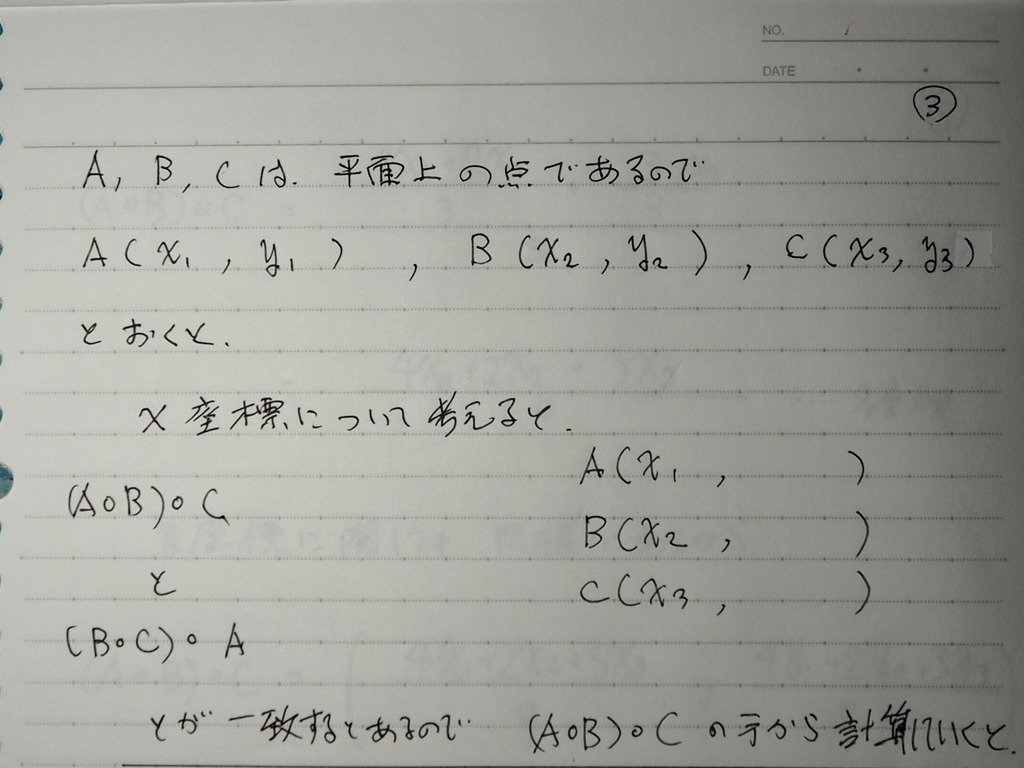 NO.
DATE
③
A, B, C は. 平面上の点であるので
A(x₁, y₁), B(x₂, y₂), C(x₃, y₃)
とおくと.
x座標について考えると.
A(x₁, )
(A∘B)∘C
B(x₂, )
と
C(x₃, )
(B∘C)∘A
とが一致するとあるので (A∘B)∘C の方から計算していくと.